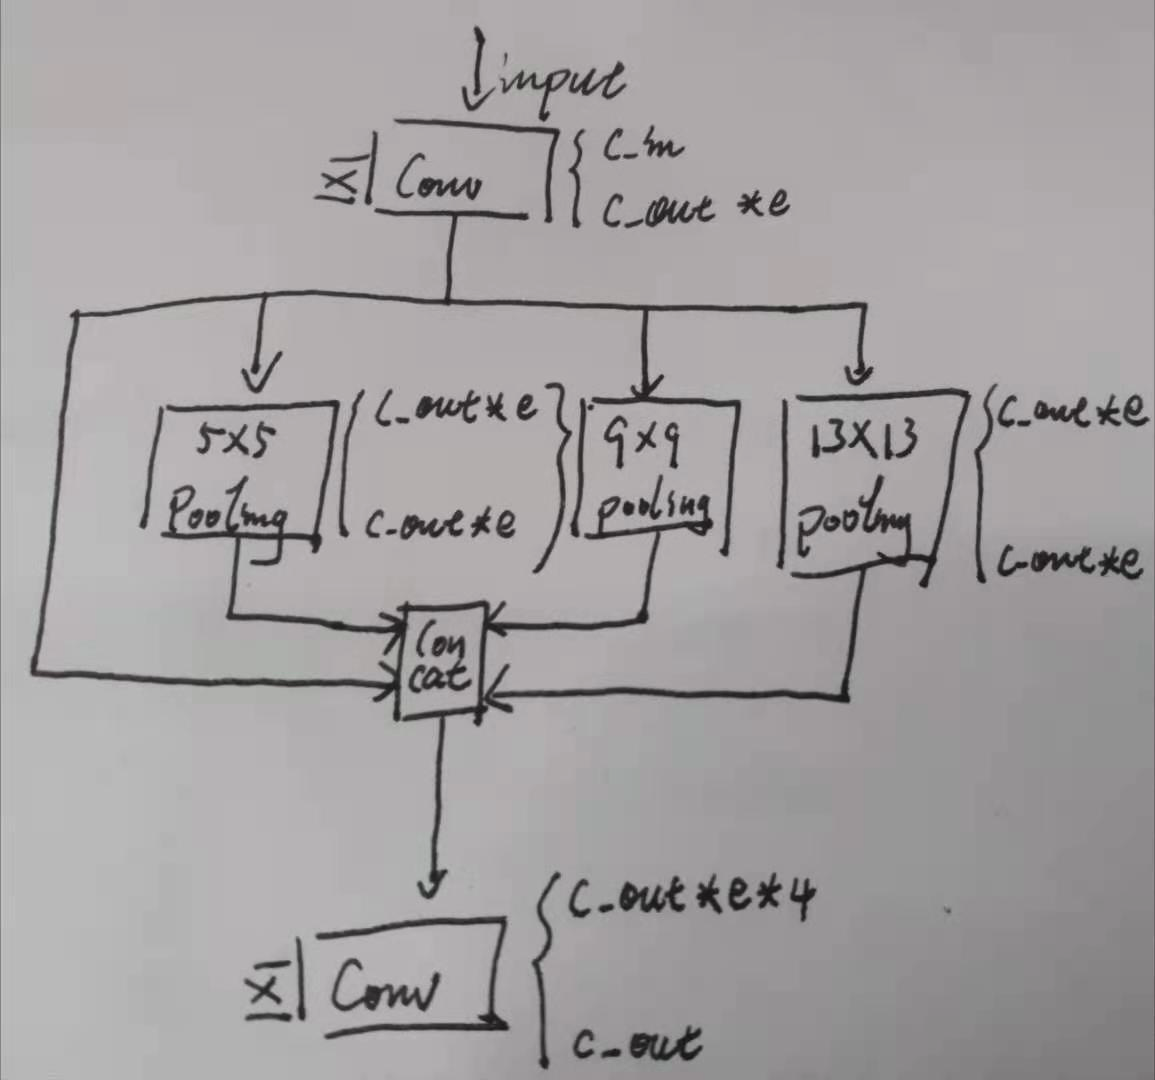 input
1X1
Conv
C_in
C_out *e
5X5
Pooling
C_out*e
C_out*e
9X9
pooling
13X13
pooling
C_out*e
C_out*e
Con
cat
C_out*e*4
1X1
Conv
C_out